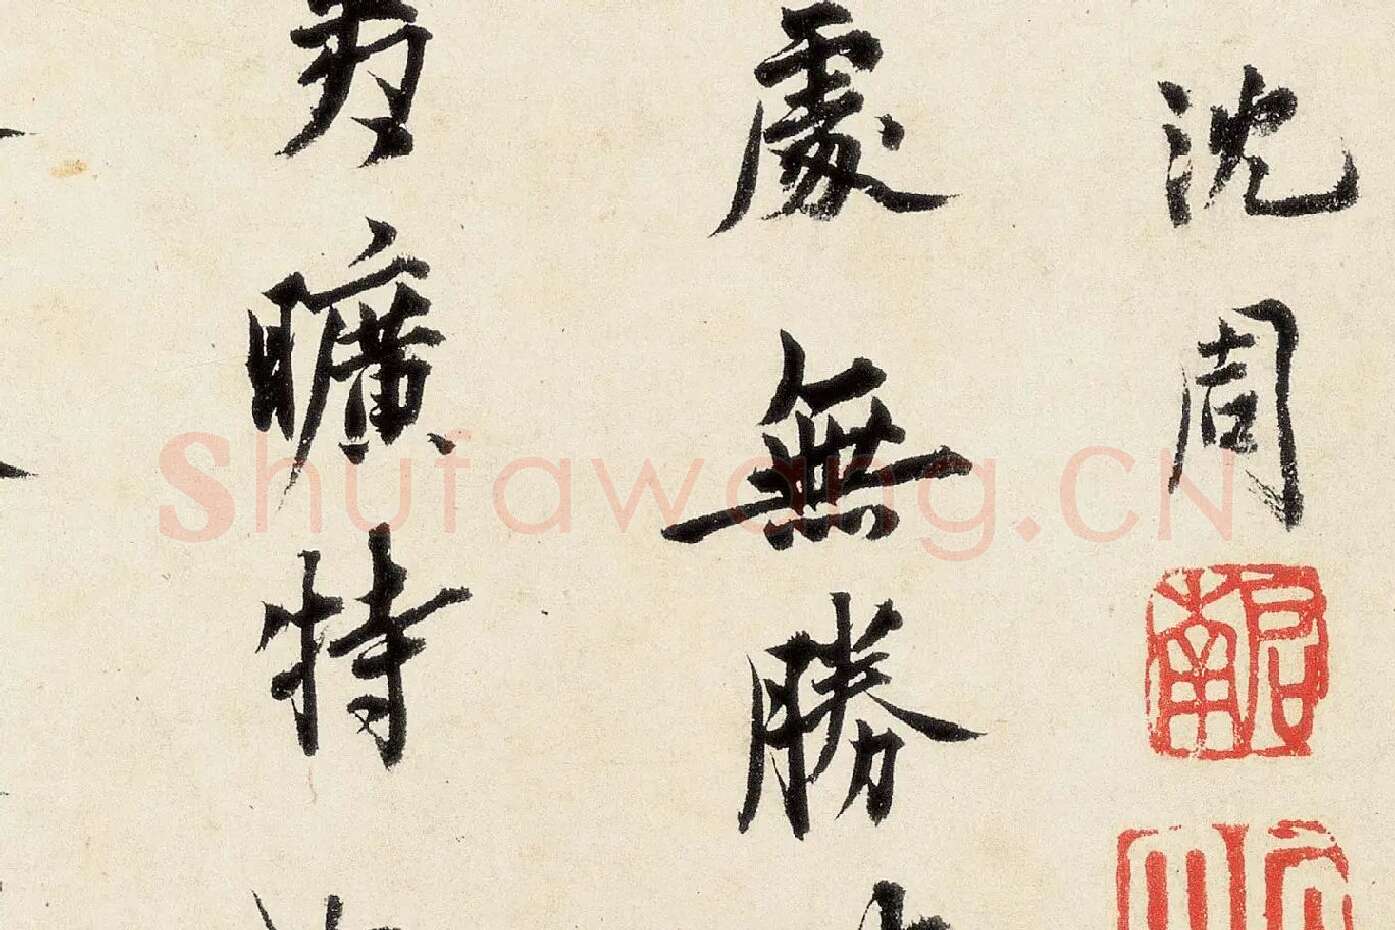 沈周
啟南
處無勝
為曠特
Shufawang.CN